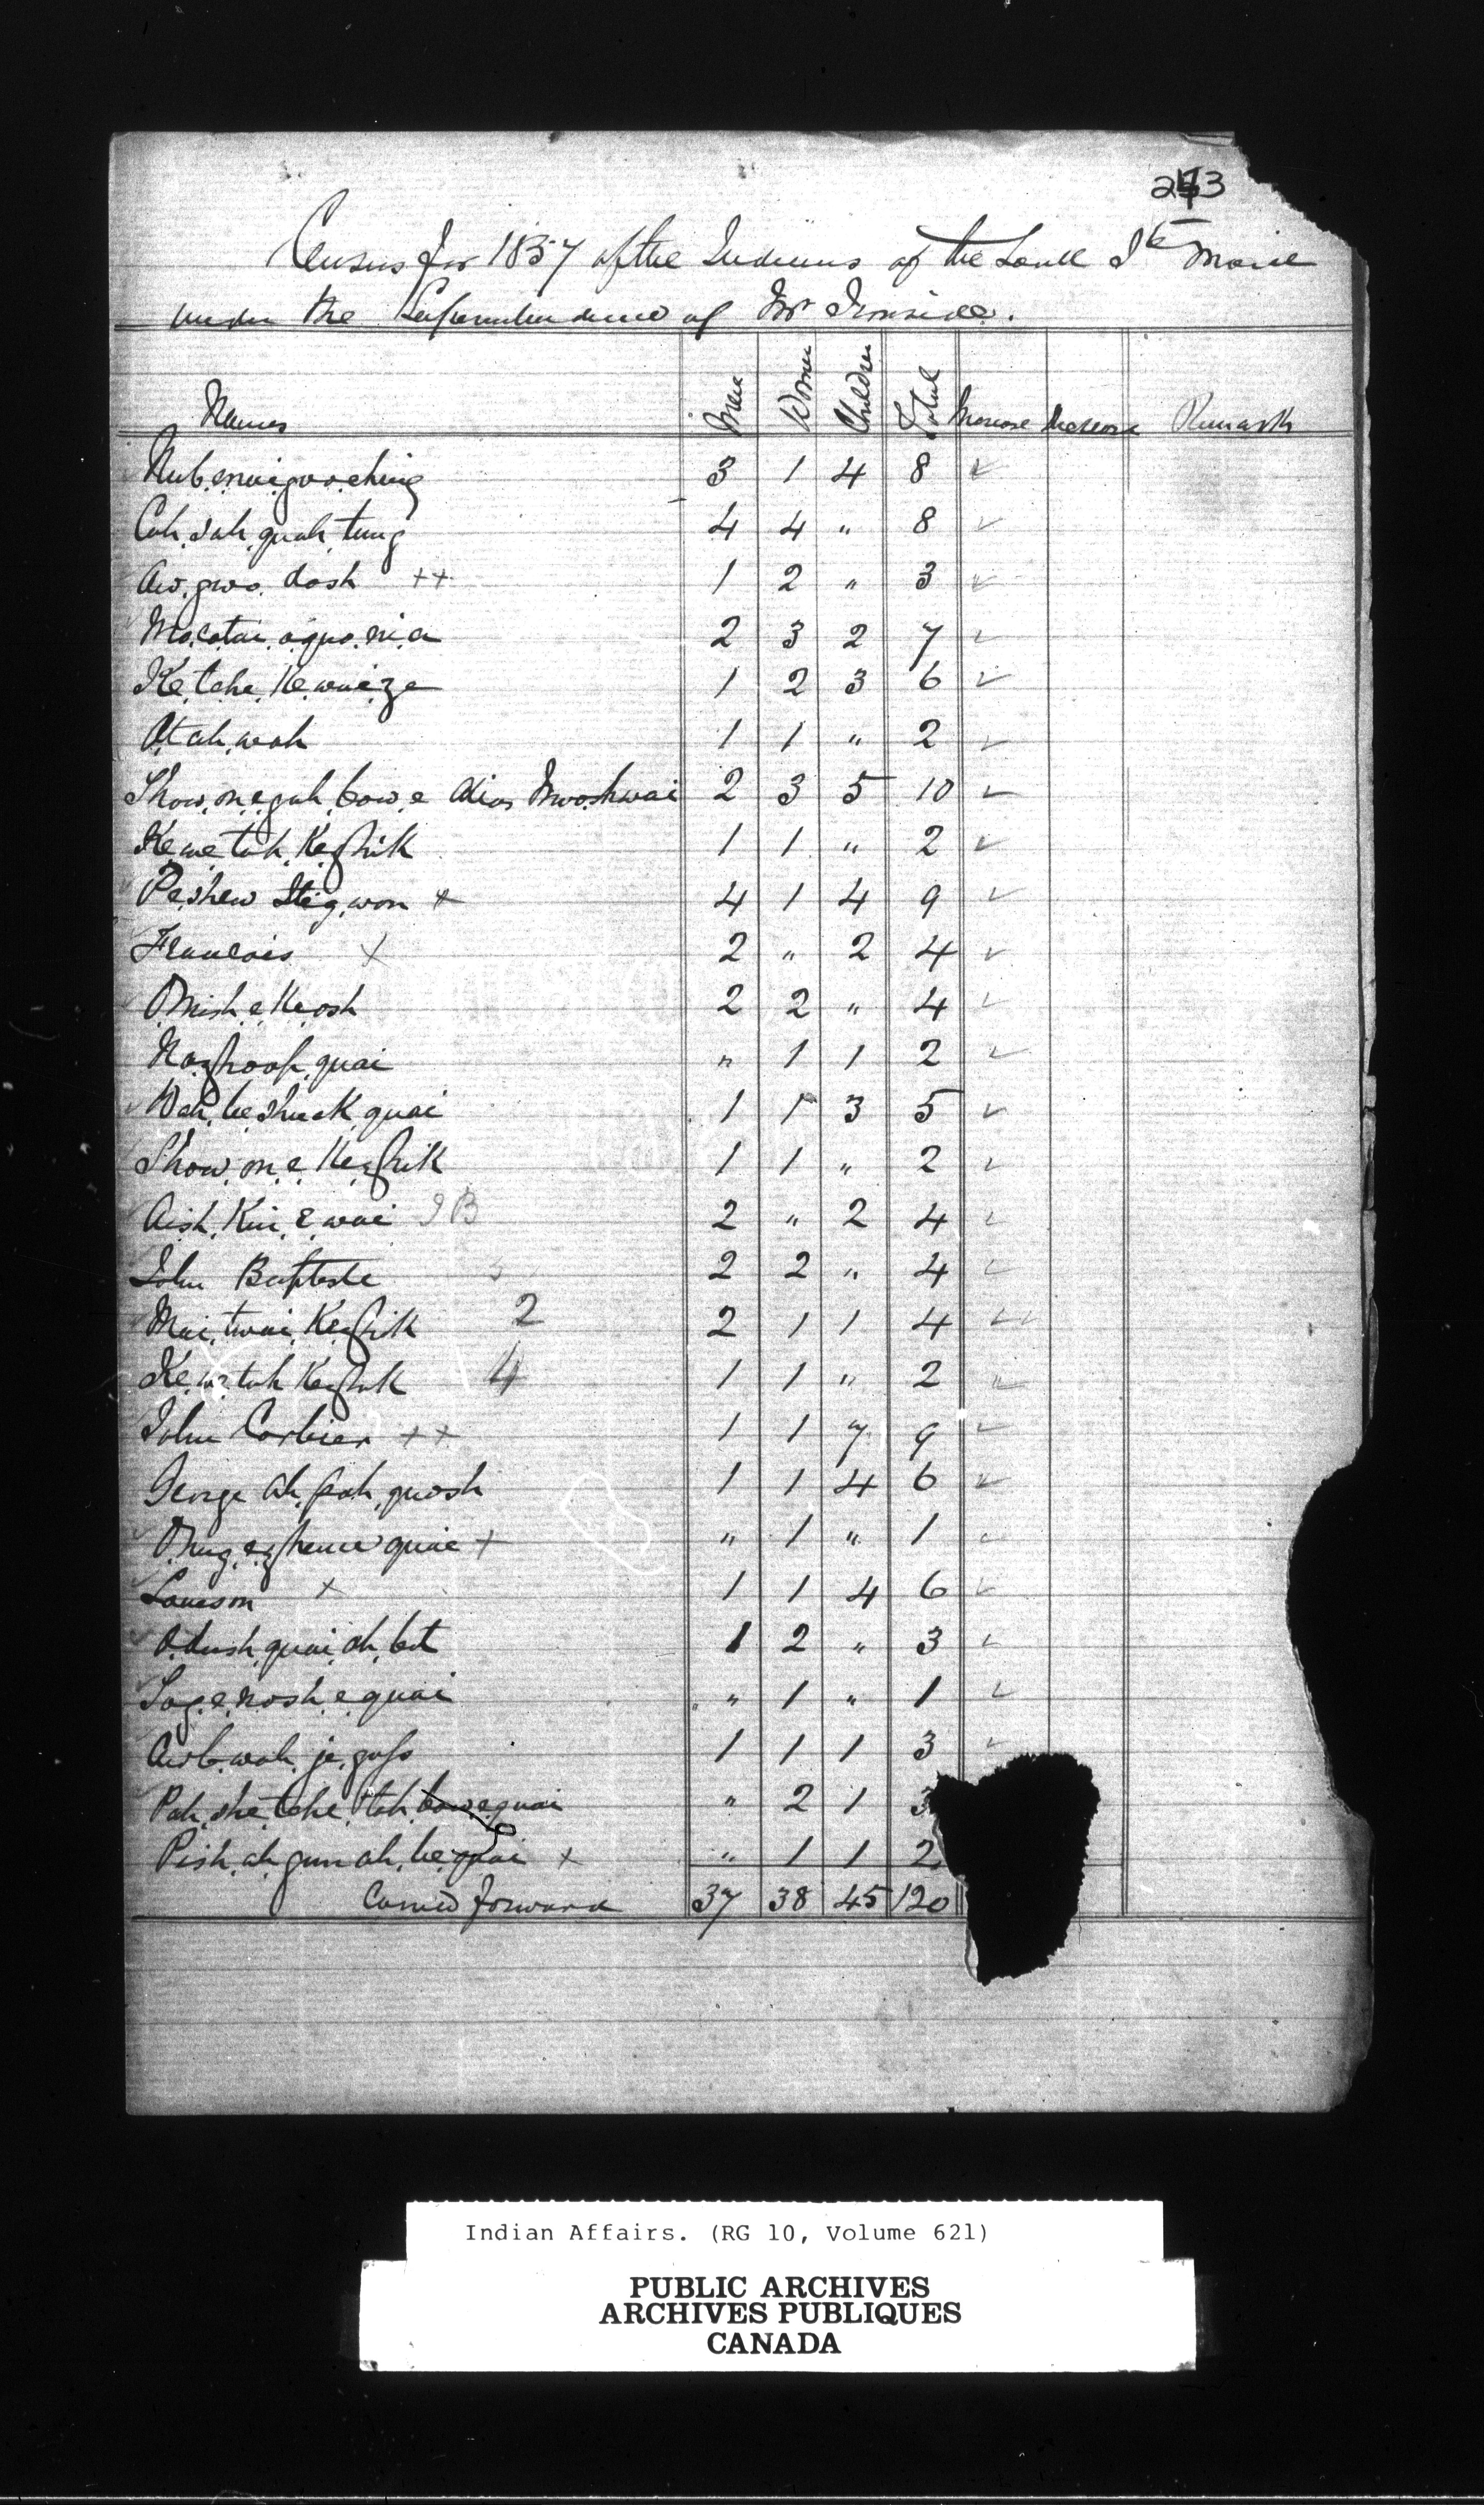 Census for 1857 of the Indians of the Sault St Marie
under the Superintendence of Mr Ironside.
Names Men Women Children Total Increase Decrease Remarks
Nub.enai.goo.ching 3 1 4 8 ✓
Cah.sah.quah.tung 4 4 " 8 ✓
Aw.gwo.dosh ++ 1 2 " 3 ✓
Macatai.oquo.nia 2 3 2 7 ✓
Ke.tche.Ke.waize 1 2 3 6 ✓
Otah.wah 1 1 " 2 ✓
Show.on.e.gah.bow.e Alias Mwoshwai 2 3 5 10 ✓
Ke.we.tah.Kezhik 1 1 " 2 ✓
Pe.shew Steg.won + 4 1 4 9 ✓
Francois + 2 " 2 4 ✓
Omish.e.Kosh 2 2 " 4 ✓
Nozhoosh.quai " 1 1 2 ✓
Wah.be.shuck.quai 1 1 3 5 ✓
Show.on.e.Ke.zhik 1 1 " 2 ✓
Aish.Kui.e.wai 2 " 2 4 ✓
John Baptiste 2 2 " 4 ✓
Mai.twai.Kezhik 2 2 1 1 4 ✓
Ke.we.tah Kezhik 4 1 1 " 2 ✓
John Corbier ++ 1 1 7 9 ✓
George Ah.pah.quosh 1 1 4 6 ✓
quai + " 1 " 1 ✓
Laueson + 1 1 4 6 ✓
O.dush.quai.ah.bit 1 2 " 3 ✓
Sag.e.nosh.e.quai " 1 " 1 ✓
Aw.b.wah.je.gass 1 1 1 3 ✓
Pah.she.tche.tah.bow.e.quai " 2 1 3
Pish.ah.gun.ah.be.quai + " 1 1 2
Carried forward 37 38 45 120
Indian Affairs. (RG 10, Volume 621)
PUBLIC ARCHIVES
ARCHIVES PUBLIQUES
CANADA